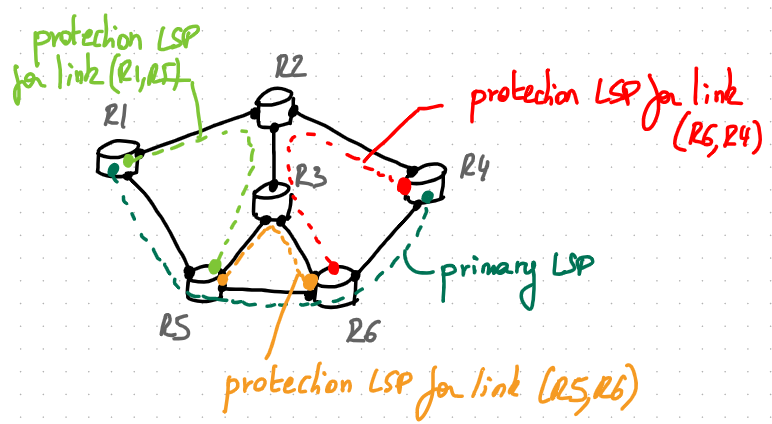 protection LSP
for link (R1,R5)
R2
R1
protection LSP for link
(R6,R4)
R3
R4
primary LSP
R5
R6
protection LSP for link (R5,R6)